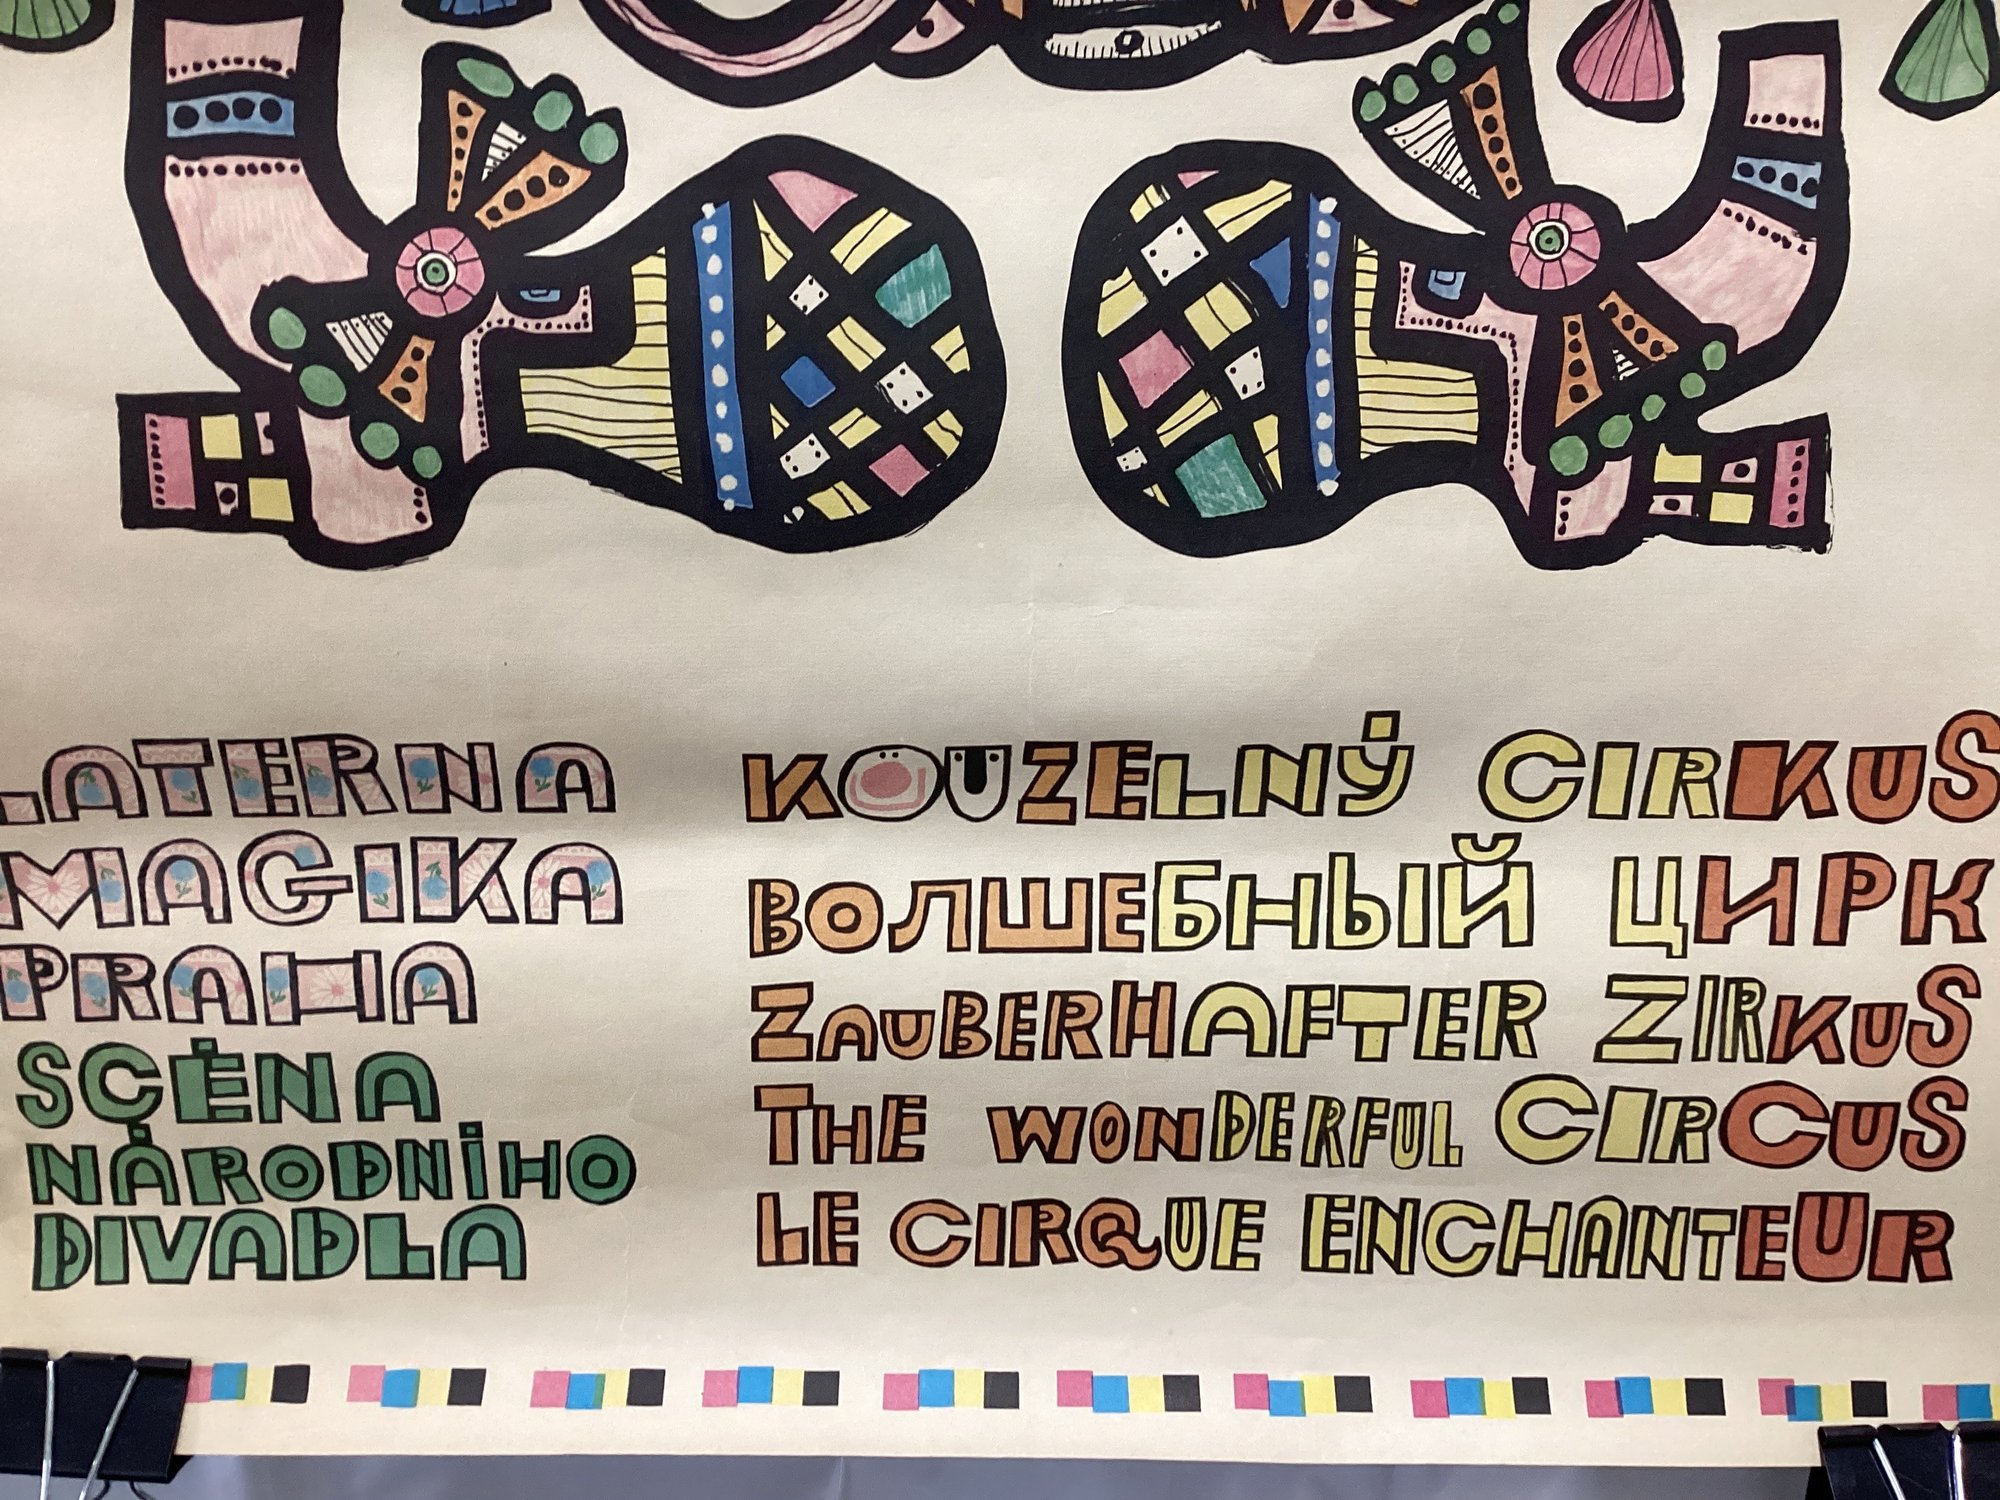 LATERNA
MAGIKA
PRAHA
SCÉNA
NÁRODNÍHO
DIVADLA
KOUZELNÝ CIRKUS
ВОЛШЕБНЫЙ ЦИРК
ZAUBERHAFTER ZIRKUS
THE WONDERFUL CIRCUS
LE CIRQUE ENCHANTEUR